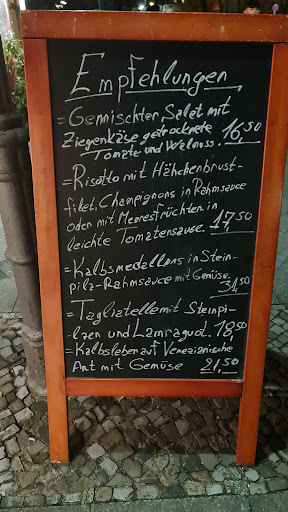 Empfehlungen
= Gemischter Salat mit
Ziegenkäse getrocknete
Tomate und Walnuss. 16,50
= Risotto mit Hähckenbrust-
filet, Champignons in Rahmsauce
oder mit Meeresfrüchten in
leichte Tomatensauce. 17,50
= Kalbsmedallons in Stein-
pilz-Rahmsauce mit Gemüse.
31,50
= Tagliatelle mit Steinpi-
lzen und Lamragout. 18,50
= Kalbsleber auf Venezianische
Art mit Gemüse 21,50